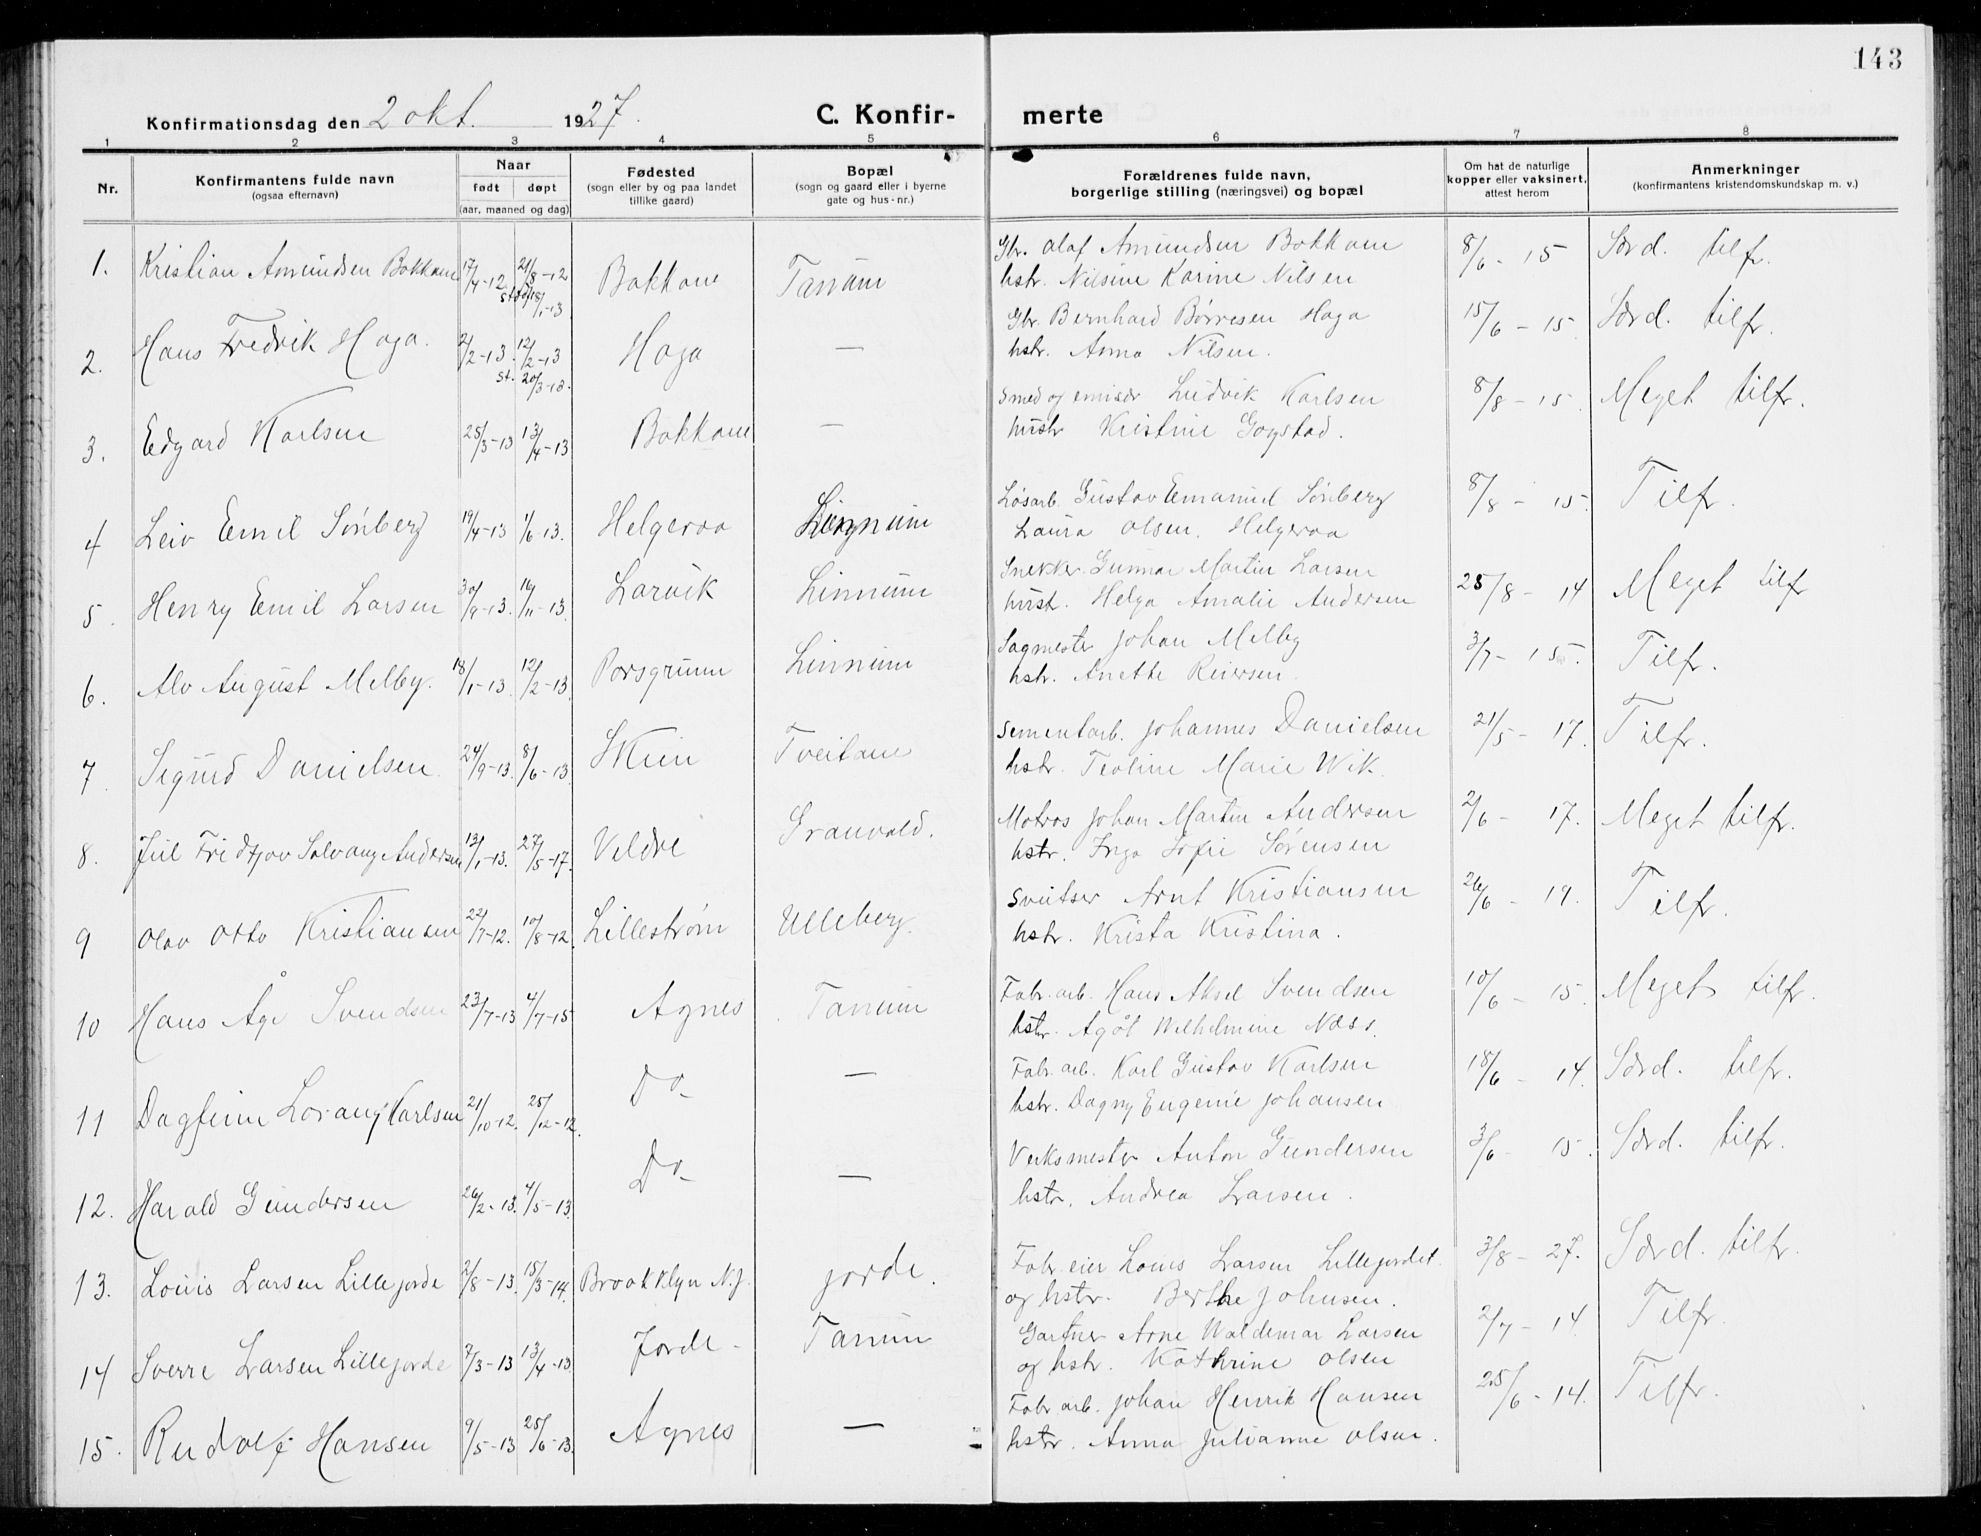 143
Konfirmationsdag den 2 okt. 1927.
C. Konfir-merte
1 2 3 4 5 6 7 8
Nr.
Konfirmantens fulde navn
(ogsaa efternavn)
Naar
født døpt
(aar, maaned og dag)
Fødested
(sogn eller by og paa landet
tillike gaard)
Bopæl
(sogn og gaard eller i byerne
gate og hus-nr.)
Forældrenes fulde navn,
borgerlige stilling (næringsvei) og bopæl
Om hat de naturlige
kopper eller vaksinert,
attest herom
Anmerkninger
(konfirmantens kristendomskundskap m. v.)
1. Kristian Amundsen Bakkane 17/4-12 21/8-12 Bakkane Tanum
18/1-13
Gbr. Olaf Amundsen Bakkane 8/6-15 Særd. tilfr.
hstr. Nilsine Karine Nilsen
2. Hans Fredrik Haga. 2/2-13. 12/2-13 Haga —
st. 20/3-13.
Gbr. Bernhard Børresen Haga 15/6-15 Særd. tilfr.
hstr. Anna Nilsen.
3. Edgard Karlsen 25/3-13 13/4-13 Bakkane —
Smed og emisær Ludvik Karlsen 8/8-15. Meget tilfr.
hustr Kristine Gogstad.
4 Leiv Emil Sønberg 19/4-13 1/6-13. Helgeroa Linnum
Løsarb. Gustav Emanuel Sønberg 8/8-15. Tilfr.
Laura Olsen. Helgeroa
5. Henry Emil Larsen 30/9-13. 16/11-13. Larvik Linnum
Snekker Gunnar Martin Larsen 25/8-14 Meget tilfr
hust. Helga Amalie Andersen
6. Alv August Melby. 18/1-13. 12/2-13. Porsgrunn Linnum
Sagmester Johan Melby 3/7-15. Tilfr.
hstr. Anette Reiersen.
7. Sigurd Danielsen. 24/9-13. 8/6-13. Skien Tveitane
Sementarb. Johannes Danielsen 21/5-17. Tilfr.
hstr. Teoline Marie Wik.
8. Juel Fridtjov Solvang Andersen 13/1-13. 27/5-17. Veldre Granvold.
Matros Johan Martin Andersen 2/6-17. Meget tilfr.
hstr. Inga Sofie Sørensen
9 Olav Otto Kristiansen 22/7-12. 10/8-12. Lillestrøm Ulleberg.
Sveitser Arnt Kristiansen 26/6-19. Tilfr.
hstr. Krista Kristina.
10 Hans Åge Svendsen 23/7-13 4/7-15 Agnes Tanum
Fabr. arb. Hans Aksel Svendsen 10/6-15. Meget tilfr.
hstr. Agöt Wilhelmine Næss.
11 Dagfinn Lorang Karlsen 21/10-12. 25/12-12. Do —
Fabr. arb. Karl Gustav Karlsen 18/6-14. Særd. tilfr.
hstr. Dagny Eugenie Johansen
12. Harald Gundersen 26/2-13. 4/5-13. Do —
Verksmester Anton Gundersen 3/6-15. Særd. tilfr.
hstr. Andrea Larsen.
13. Louis Larsen Lillejorde 2/8-13. 15/3-14. Brookklyn N.J. Jorde.
Fabr. eier Louis Larsen Lillejordet. 3/8-27. Særd. tilfr.
og hstr. Berthe Johnsen.
14 Sverre Larsen Lillejorde 7/3-13 13/4-13 Jorde Tanum
Gartner Arne Waldemar Larsen 2/7-14. Tilfr.
og hstr. Kathrine Olsen
15. Rudolf Hansen 9/5-13 25/6-13. Agnes —
Fabr. arb. Johan Henrik Hansen 25/6-14. Tilfr.
hstr. Anna Julianne Olsen.